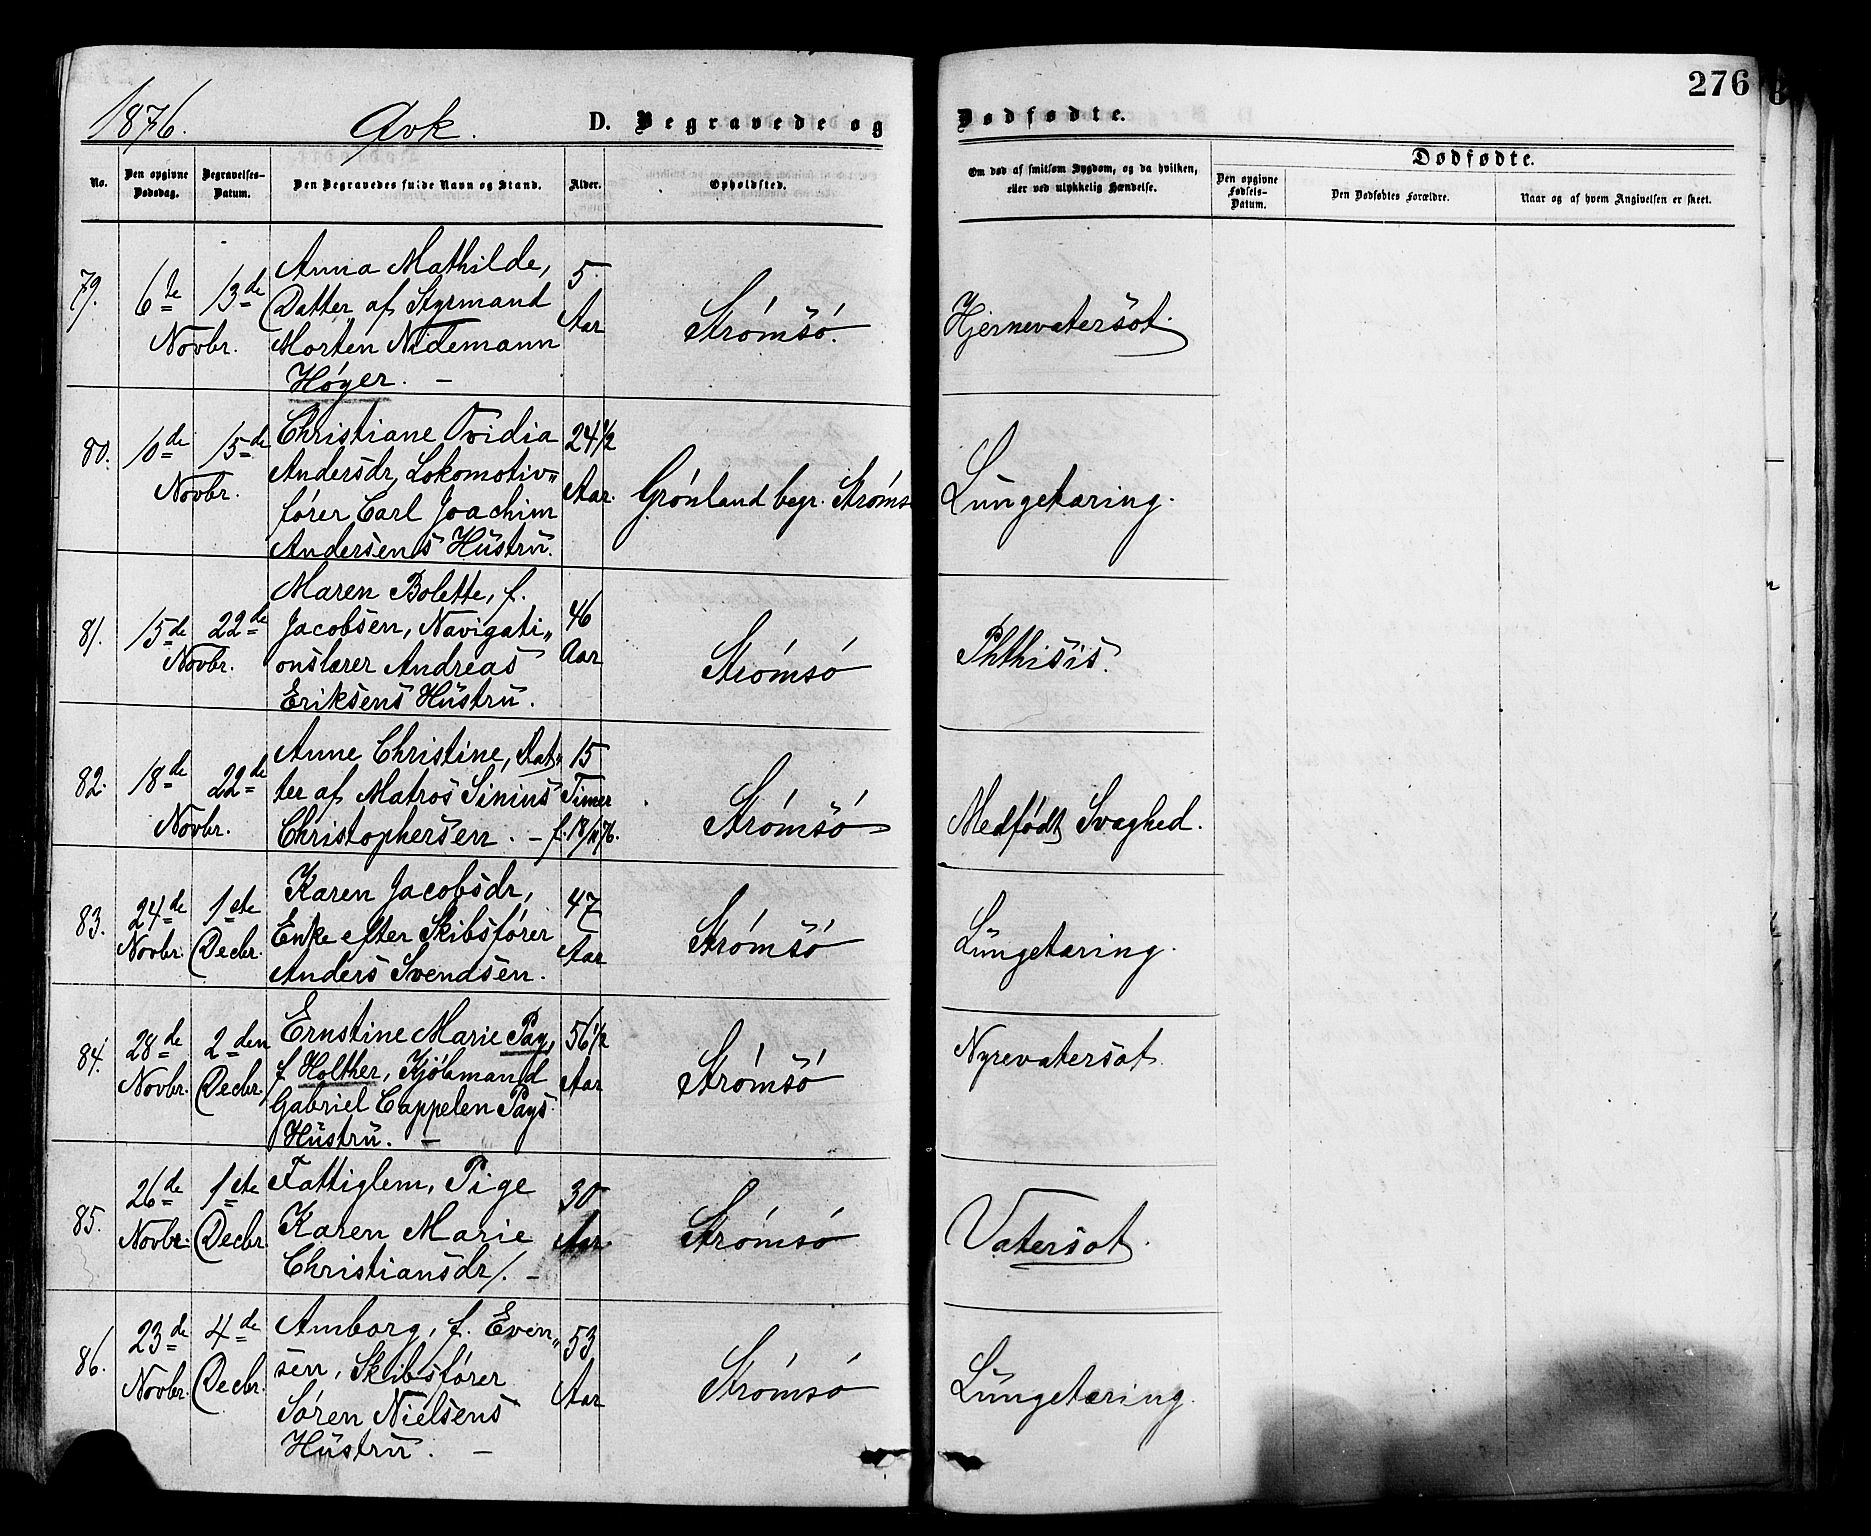 276
1876. Qvk. D. Begravede og Dødfødte.
No. Den opgivne Dødsdag. Begravelses-Datum. Den Begravedes fulde Navn og Stand. Alder. Opholdsted. Om død af smitsom Sygdom, og da hvilken, eller ved ulykkelig Hændelse. Dødfødte.
Den opgivne Fødsels-Datum. Den Dødfødtes Forældre. Naar og af hvem Angivelsen er skeet.
79. 6te 13de Novbr. Anna Mathilde, 5 Aar Strömsö. Hjernevatersot.
Datter af Styrmand
Morten Nidemann
Höyer. –
80. 10de 15de Novbr. Christiane Ovidia 24 1/2 Aar. Grönland begr. Ströms Lungetæring.
Andersdr, Lokomotiv„
förer Carl Joachim
Andersens Hustru.
81. 15de 22de Novbr. Maren Bolette, f. 46 Aar Strömsö Phthisis.
Jacobsen, Navigati„
onslærer Andreas
Eriksens Hustru.
82. 18de 22de Novbr. Anne Christine, Dat„ 15 Timer Strömsö Medfødt Svaghed.
ter af Matros Sinius
Christophersen. – f. 18/11 76.
83. 24de Novbr. 1ste Decbr. Karen Jacobsdr, 47 Aar Strömsö Lungetæring.
Enke efter Skibsförer
Anders Svendsen.
84. 28de Novbr. 2den Decbr. Ernstine Marie Pay, 56 1/2 Aar Strömsö Nyrevatersot.
f. Holther, Kjöbmand
Gabriel Cappelen Pays
Hustru. –
85. 26de Novbr. 1ste Decbr. Fattiglem, Pige 30 Aar. Strömsö Vatersot.
Karen Marie
Christiansdr/. –
86. 23de Novbr. 4de Decbr. Amborg, f. Even„ 53 Aar Strömsö Lungetæring.
sen, Skibsförer
Sören Nielsens
Hustru. –